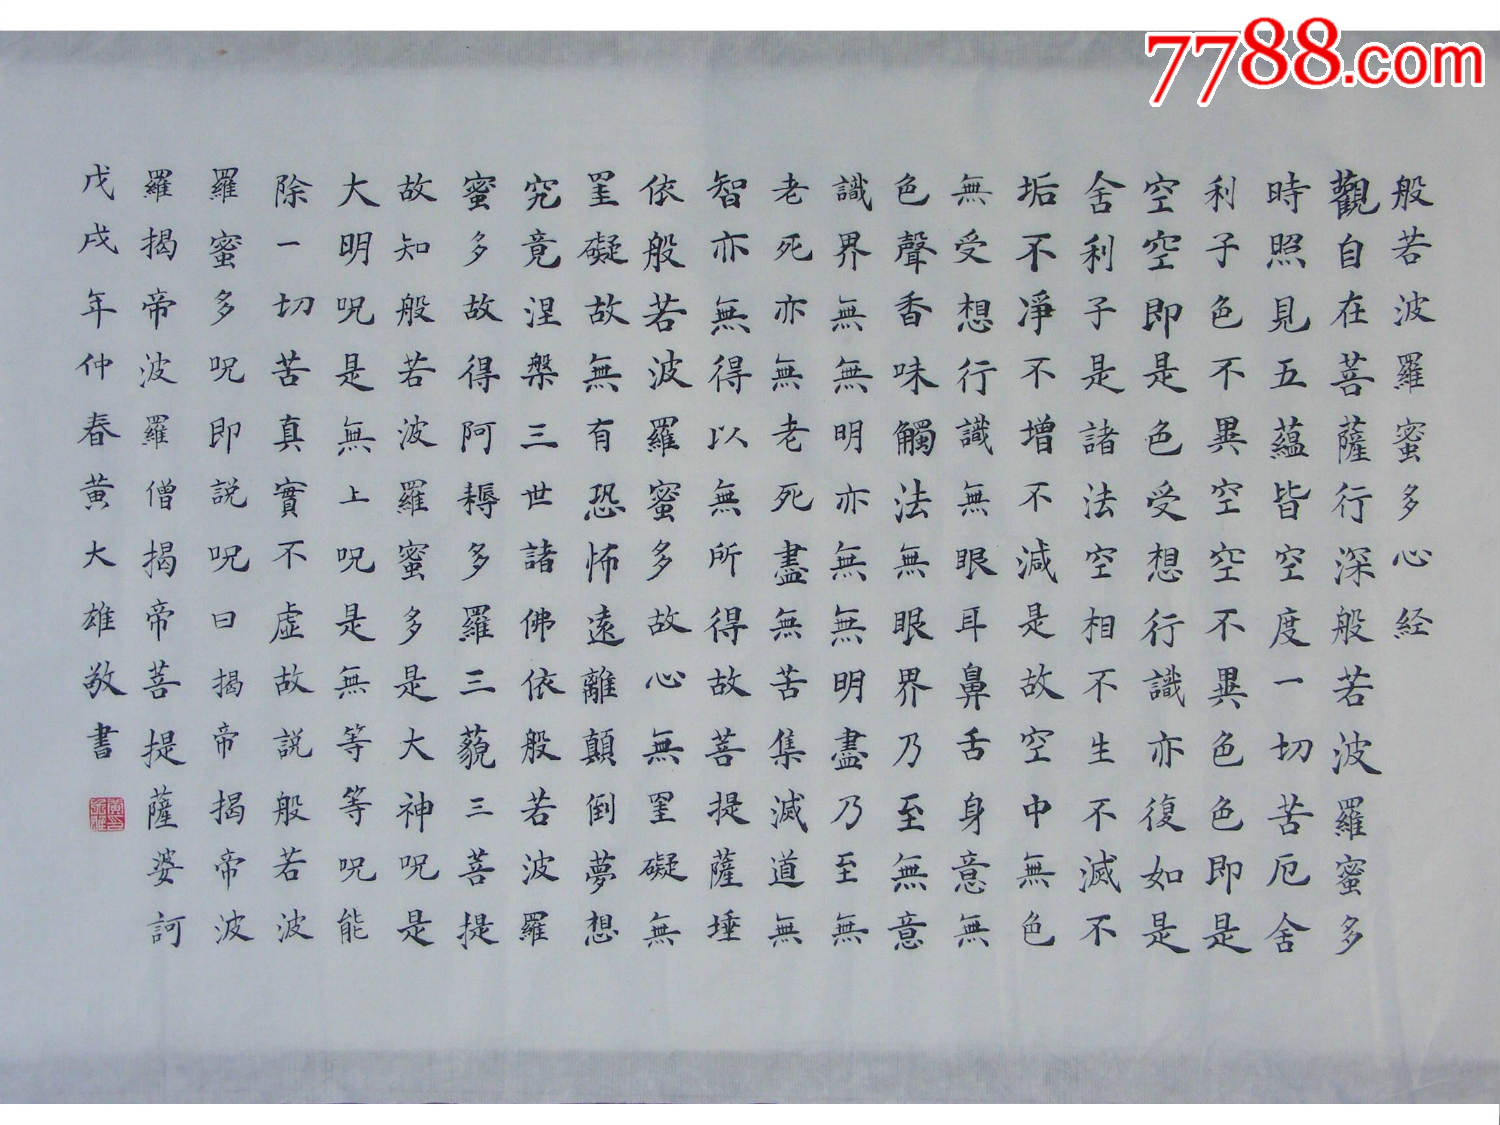 7788.com
般若波羅蜜多心経
觀自在菩薩行深般若波羅蜜多
時照見五蘊皆空度一切苦厄舍
利子色不異空空不異色色即是
空空即是色受想行識亦復如是
舍利子是諸法空相不生不滅不
垢不凈不增不減是故空中無色
無受想行識無眼耳鼻舌身意無
色聲香味觸法無眼界乃至無意
識界無無明亦無無明盡乃至無
老死亦無老死盡無苦集滅道無
智亦無得以無所得故菩提薩埵
依般若波羅蜜多故心無罣礙無
罣礙故無有恐怖遠離顛倒夢想
究竟涅槃三世諸佛依般若波羅
蜜多故得阿耨多羅三藐三菩提
故知般若波羅蜜多是大神呪是
大明呪是無上呪是無等等呪能
除一切苦真實不虛故説般若波
羅蜜多呪即説呪曰揭帝揭帝波
羅揭帝波羅僧揭帝菩提薩婆訶
戊戌年仲春黄大雄敬書